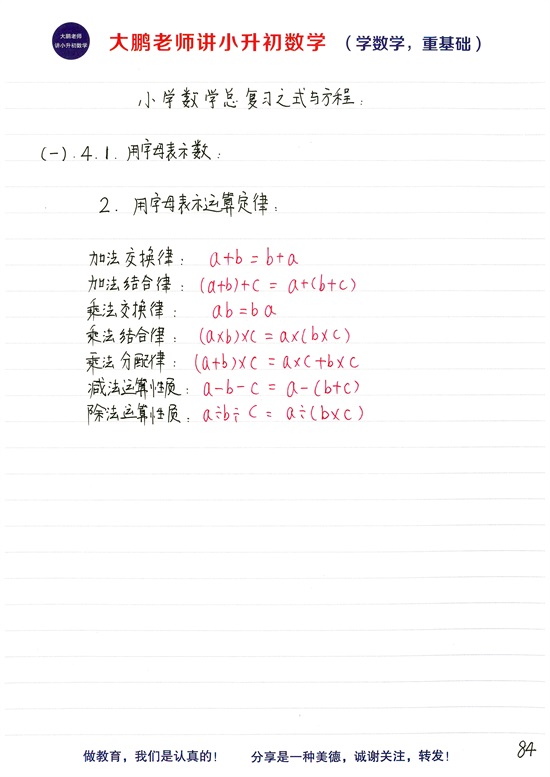 大鹏老师
讲小升初数学
大鹏老师讲小升初数学 （学数学，重基础）
小学数学总复习之式与方程：
(一).4.1.用字母表示数：
2.用字母表示运算定律：
加法交换律：a+b=b+a
加法结合律：(a+b)+c=a+(b+c)
乘法交换律：ab=ba
乘法结合律：(a×b)×c=a×(b×c)
乘法分配律：(a+b)×c=a×c+b×c
减法运算性质：a-b-c=a-(b+c)
除法运算性质：a÷b÷c=a÷(b×c)
84
做教育，我们是认真的！ 分享是一种美德，诚谢关注，转发！